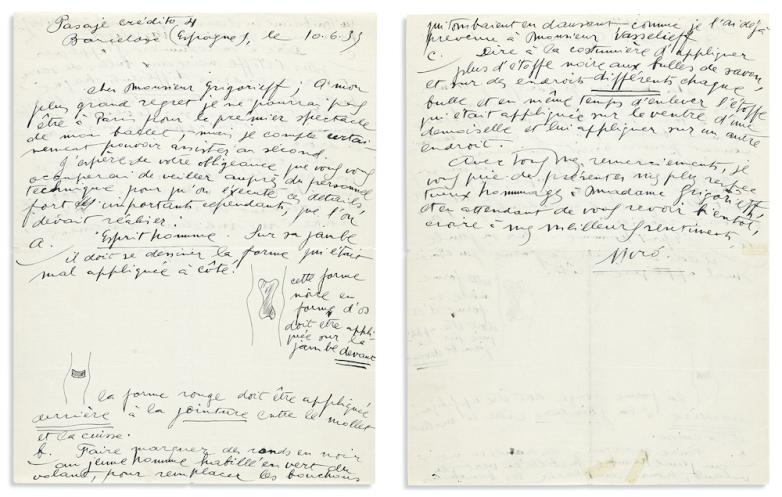 Pasaje crédito 4
Barcelone (Espagne), le 10.6.33
cher Monsieur Grigorieff; A mon
plus grand regret je ne pourrai pas
être à Paris pour le premier spectacle
de mon ballet, mais je compte certai
nement pouvoir assister au second.
J'espère de votre obligeance que vous vous
occuperai de veiller auprès du personnel
technique pour qu'on exécute ces détails,
fort importants cependants, que l'on
devait réaliser.
a. Esprit homme. Sur sa jambe
il doit se dessiner la forme qui était
mal appliquée à côté.
cette forme
noire en
forme d'os
doit être appli-
quée sur la
jambe devant
la forme rouge doit être appliquée
derrière à la jointure entre le mollet
et la cuisse.
b. Faire marquer des ronds en noir
au jeune homme habillé en vert du
volant, pour remplacer les bouchons
qui tombaient en dansant comme je l'ai déjà
prevenu à Monsieur Vassilieff.
c. Dire à la costumière d'appliquer
plus d'étoffe noire aux bulles de savon,
et sur des endroits différents chaque
bulle et en même temps d'enlever l'étoffe
qui était appliquée sur le ventre d'une
demoiselle et lui appliquer sur un autre
endroit.
Avec tous mes remerciements, je
vous prie de présenter mes plus respec
tueux hommages à Madame Grigorieff,
et en attendant de vous revoir bientôt,
croire à mes meilleurs sentiments.
Miró.